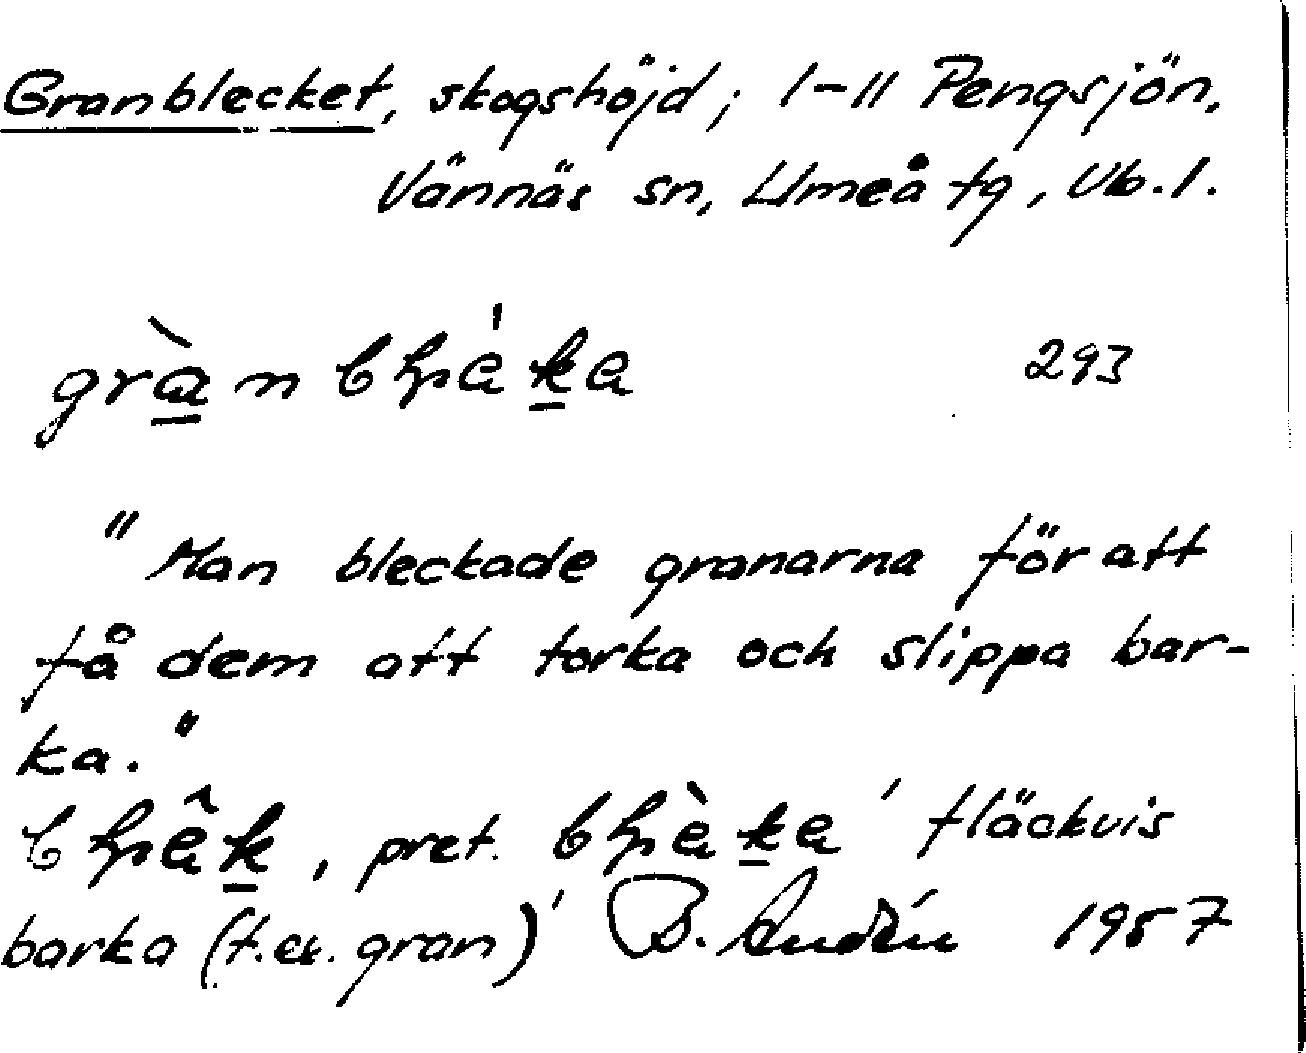 Granblecket, skogshöjd; 1-11 Pengsjön,
Vännäs sn, Umeå tg, Vb. l.
293
"Man bleckade granarna för att
få dem att torka och slippa bar-
ka."
, pret. ' fläckvis
barka (t.ex. gran)' B. 1957